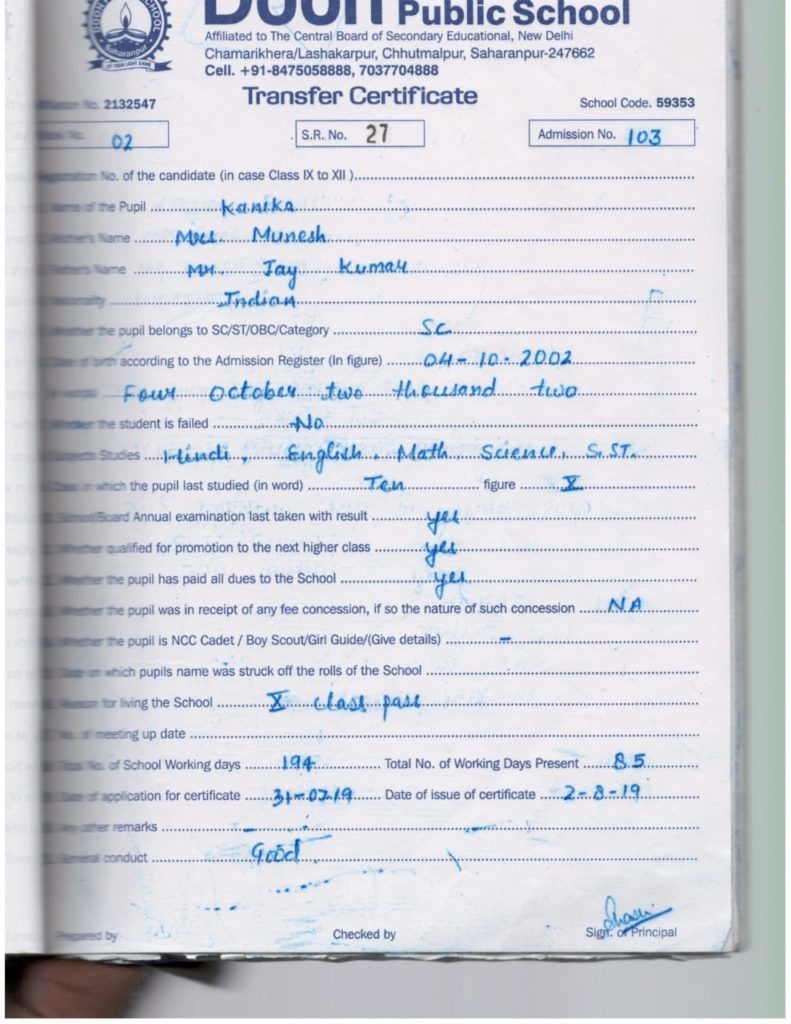 Doon Public School
Affiliated to The Central Board of Secondary Educational, New Delhi
Chamarikhera/Lashakarpur, Chhutmalpur, Saharanpur-247662
Cell. +91-8475058888, 7037704888
Transfer Certificate
No. 2132547
School Code. 59353
02
S.R. No. 27
Admission No. 103
No. of the candidate (in case Class IX to XII)
Name of the Pupil Kanika
Name Mrs. Munesh
Name Mr. Jay Kumar
Indian
Whether the pupil belongs to SC/ST/OBC/Category SC
Date of birth according to the Admission Register (In figure) 04-10-2002
Four October two thousand two
Whether the student is failed No
Subjects Studies Hindi, English, Math, Science, S.ST.
Class in which the pupil last studied (in word) Ten figure X
School/Board Annual examination last taken with result yes
Whether qualified for promotion to the next higher class yes
Whether the pupil has paid all dues to the School yes
Whether the pupil was in receipt of any fee concession, if so the nature of such concession NA
Whether the pupil is NCC Cadet / Boy Scout/Girl Guide/(Give details) -
on which pupils name was struck off the rolls of the School
Reason for living the School X class pass
No. of meeting up date
Total No. of School Working days 194 Total No. of Working Days Present 85
Date of application for certificate 31-07-19 Date of issue of certificate 2-8-19
Any other remarks - -
General conduct Good
Prepared by
Checked by
Sign. of Principal